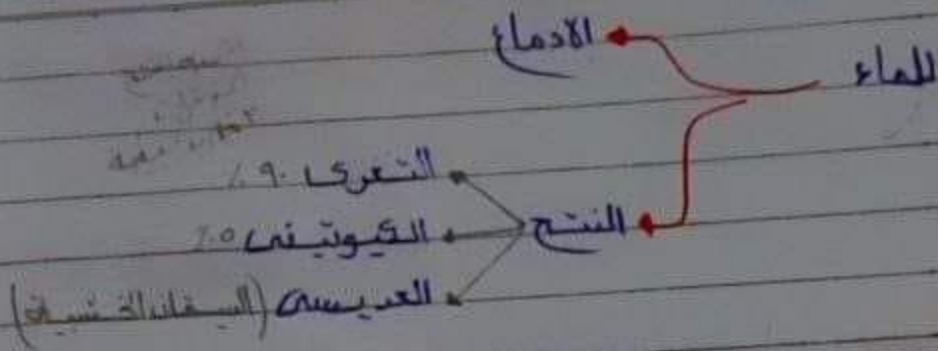 للماء
الادماع
النتح
الثغرى ٩٠٪
الكيوتينى ٥٪
العديسى (السيقان الخشبية)